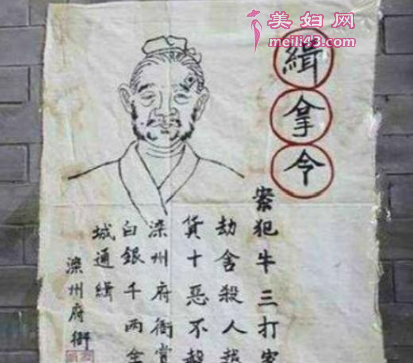 美妇网
meili43.com
缉拿令
案犯牛三打家
劫舍殺人报
貨十恶不赦
滦州府衙賞
白銀千两全
城通缉
滦州府衙